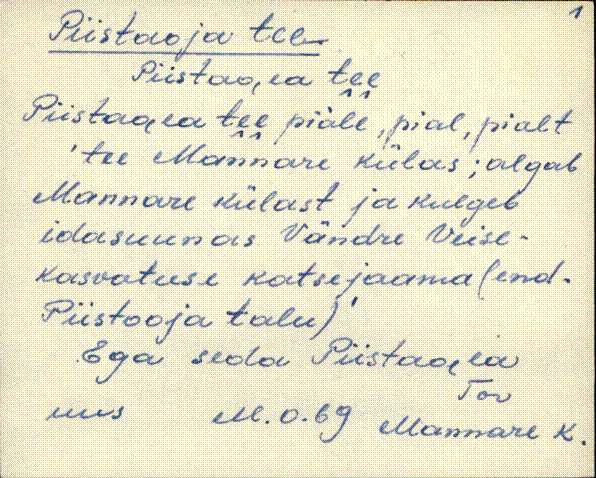 1
Piistaoja tee
Piistaọ,ea tee
Piistaọ,ea tee piäle, pial, pialt
'tee Mannare külas; algab
Mannare külast ja kulgeb
idasuunas Vändre Veise-
kasvatuse katsejaama (end.
Piistooja talu)'
Ega seda Piistaọ,ea
Tor
uus M.O.69 Mannare K.